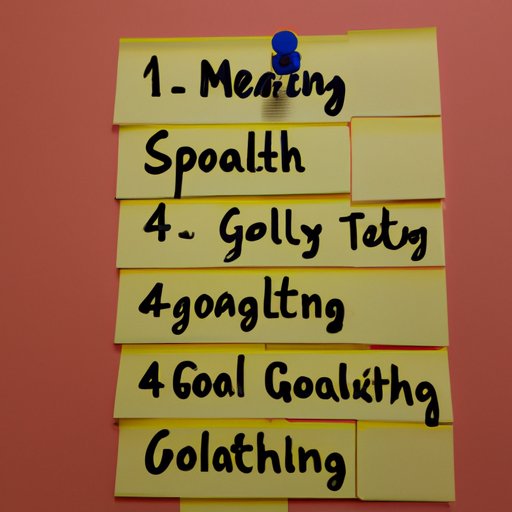 1- Mericng
Spoalth
4- Golly Tetg
4goagltng
4 Goal Goalkthg
Golathlng